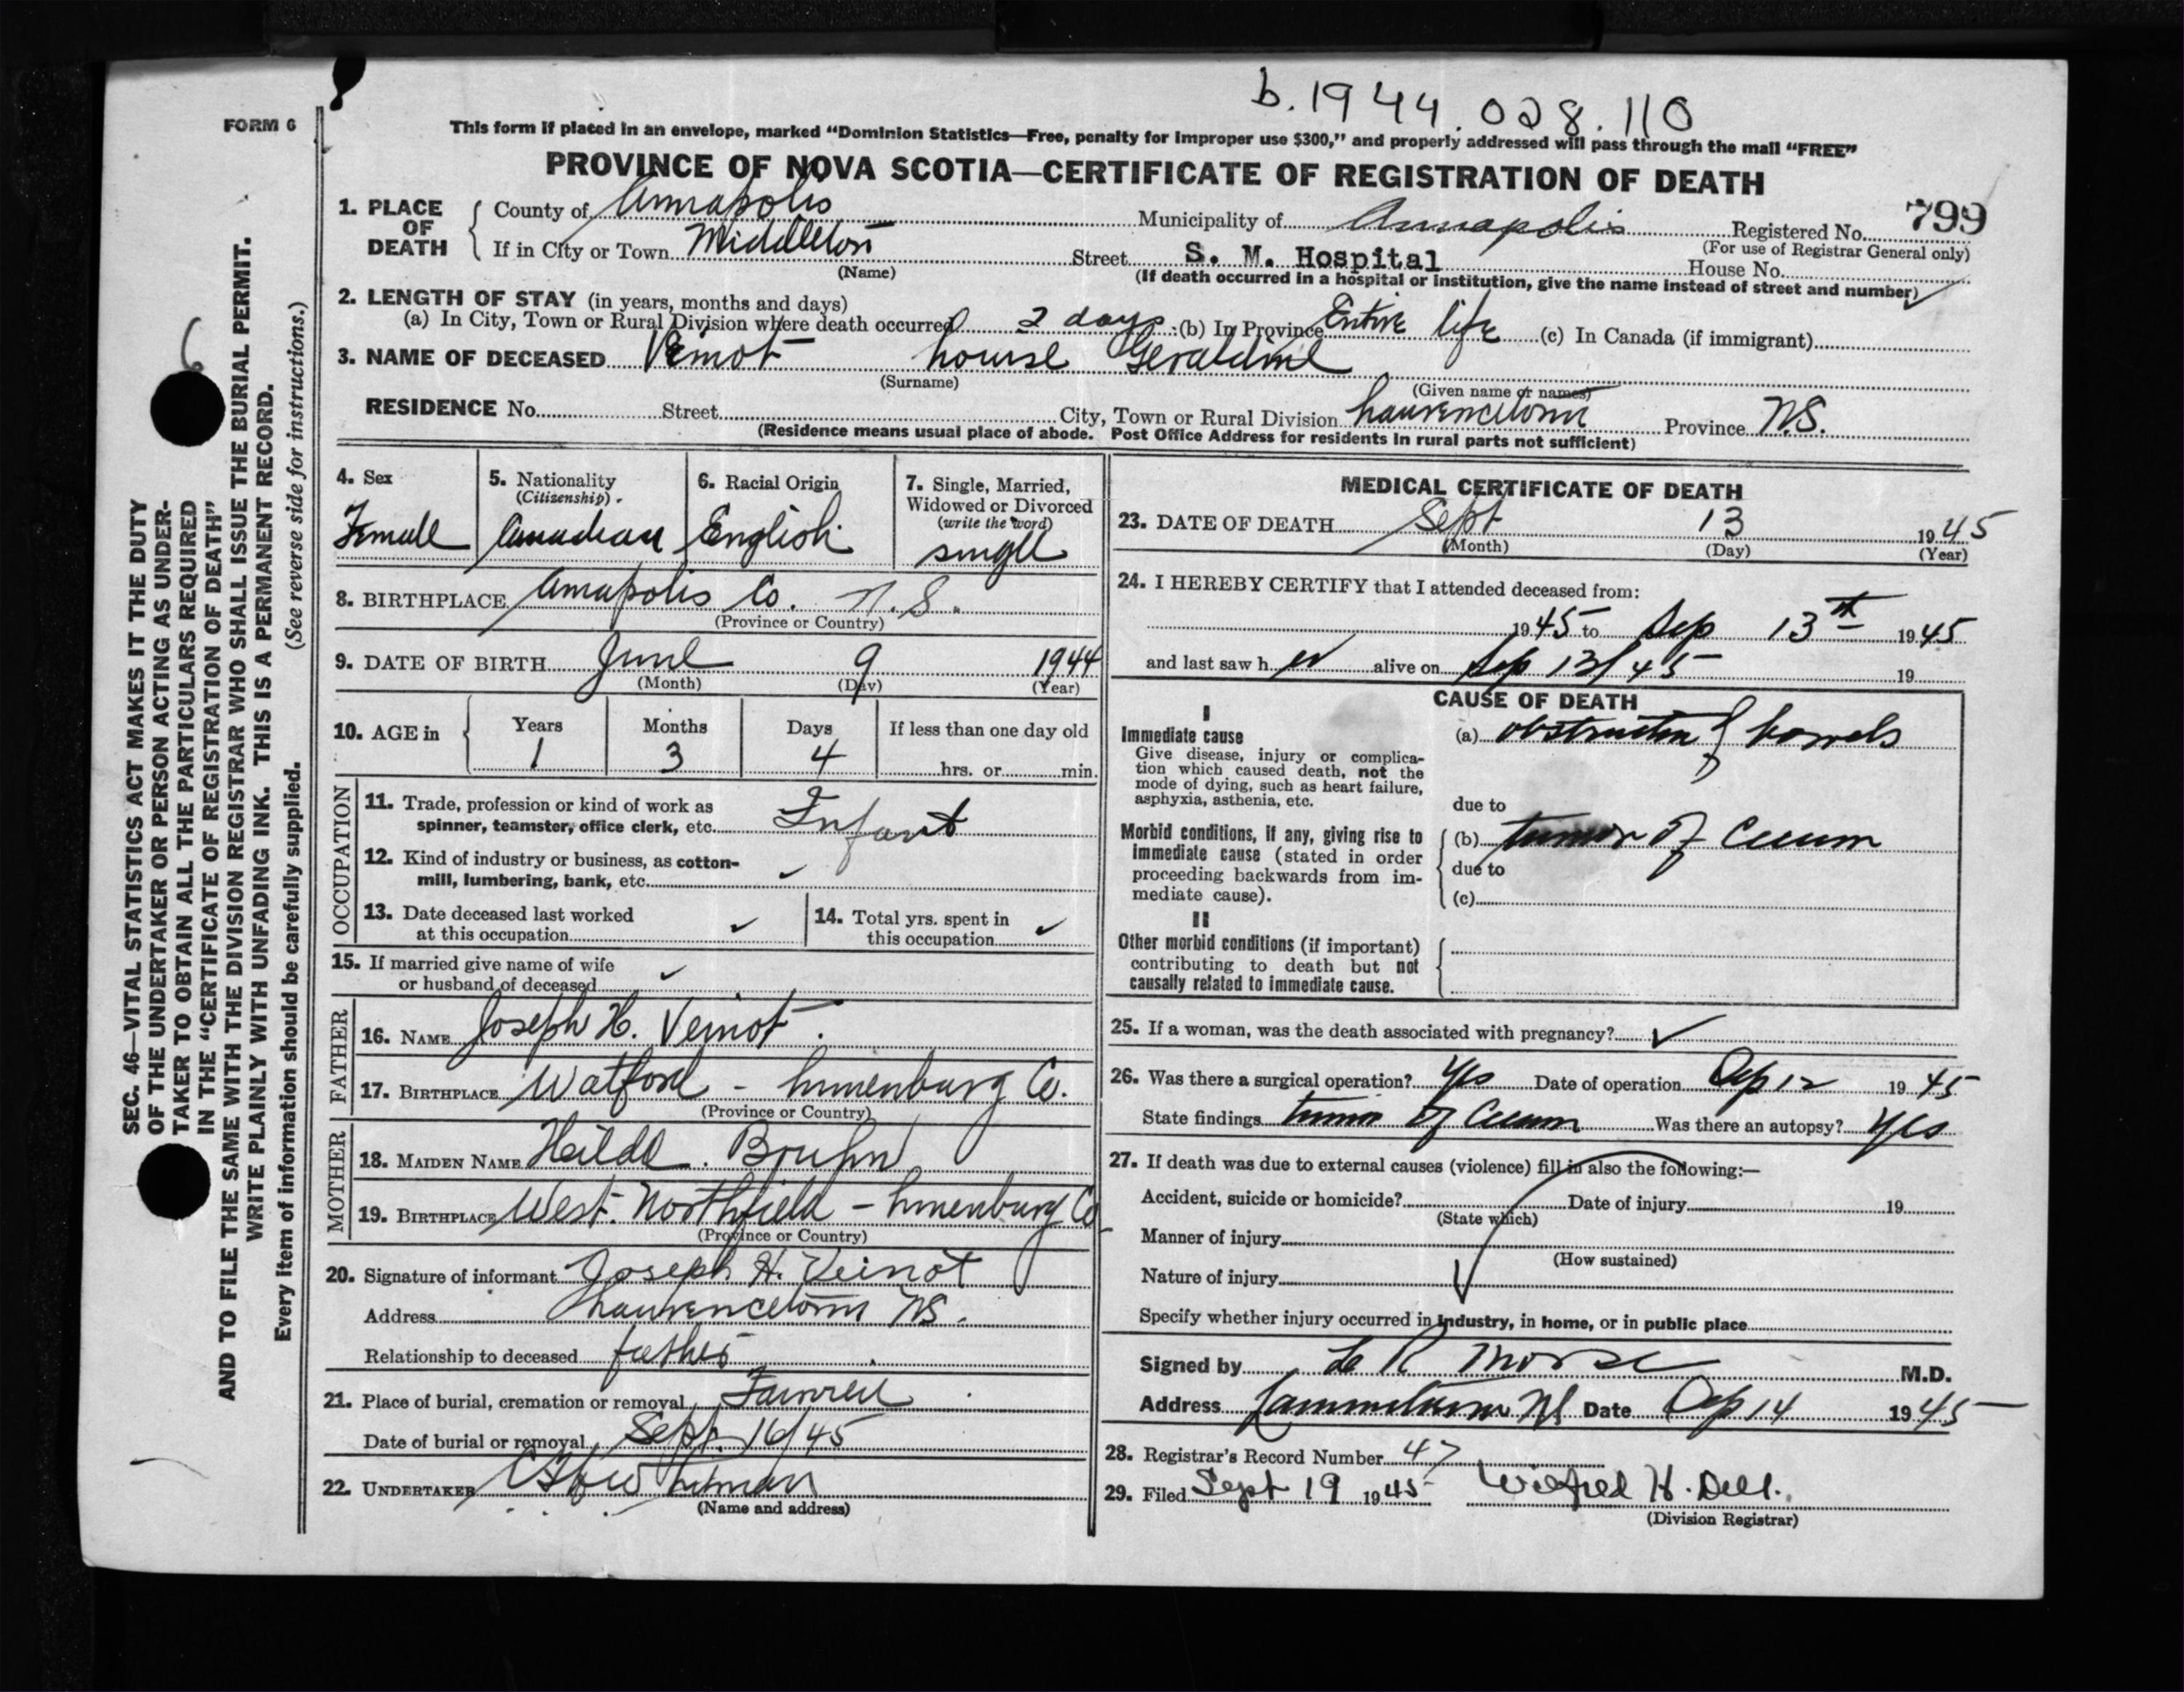 b. 1944. 028. 110
FORM 6
This form if placed in an envelope, marked “Dominion Statistics—Free, penalty for improper use $300,” and properly addressed will pass through the mail “FREE”
PROVINCE OF NOVA SCOTIA—CERTIFICATE OF REGISTRATION OF DEATH
1. PLACE OF DEATH { County of Annapolis Municipality of Annapolis Registered No. 799
(For use of Registrar General only)
If in City or Town Middleton Street S. M. Hospital House No.
(Name) (If death occurred in a hospital or institution, give the name instead of street and number)
2. LENGTH OF STAY (in years, months and days)
(a) In City, Town or Rural Division where death occurred 2 days (b) In Province Entire life (c) In Canada (if immigrant)
3. NAME OF DECEASED Veinot Louise Geraldine
(Surname) (Given name or names)
RESIDENCE No. Street City, Town or Rural Division Lawrencetown Province N.S.
(Residence means usual place of abode. Post Office Address for residents in rural parts not sufficient)
4. Sex Female
5. Nationality (Citizenship) Canadian
6. Racial Origin English
7. Single, Married, Widowed or Divorced (write the word) single
8. BIRTHPLACE Annapolis Co. N.S.
(Province or Country)
9. DATE OF BIRTH June 9 1944
(Month) (Day) (Year)
10. AGE in { Years 1 Months 3 Days 4 If less than one day old
hrs. or min.
OCCUPATION
11. Trade, profession or kind of work as
spinner, teamster, office clerk, etc. Infant
12. Kind of industry or business, as cotton-
mill, lumbering, bank, etc. ✓
13. Date deceased last worked
at this occupation ✓
14. Total yrs. spent in
this occupation ✓
15. If married give name of wife
or husband of deceased ✓
FATHER
16. NAME Joseph H. Veinot.
17. BIRTHPLACE Watford - Lunenburg Co.
(Province or Country)
MOTHER
18. MAIDEN NAME Hilda Bruhn
19. BIRTHPLACE West Northfield - Lunenburg Co
(Province or Country)
20. Signature of informant Joseph H. Veinot
Address Lawrencetown NS.
Relationship to deceased father
21. Place of burial, cremation or removal
Date of burial or removal Sept. 16/45
22. UNDERTAKER Whitman
(Name and address)
MEDICAL CERTIFICATE OF DEATH
23. DATE OF DEATH Sept 13 1945
(Month) (Day) (Year)
24. I HEREBY CERTIFY that I attended deceased from:
1945 to Sep 13th 1945
and last saw her alive on Sep 13/45 19
CAUSE OF DEATH
I
Immediate cause
Give disease, injury or complica-
tion which caused death, not the
mode of dying, such as heart failure,
asphyxia, asthenia, etc.
(a) obstruction of bowels
due to
Morbid conditions, if any, giving rise to
immediate cause (stated in order
proceeding backwards from im-
mediate cause).
(b) tumor of Cecum
due to
(c)
II
Other morbid conditions (if important)
contributing to death but not
causally related to immediate cause.
25. If a woman, was the death associated with pregnancy? ✓
26. Was there a surgical operation? Yes Date of operation Sep 12 1945
State findings tumor of Cecum Was there an autopsy? Yes
27. If death was due to external causes (violence) fill in also the following:—
Accident, suicide or homicide? Date of injury 19
(State which)
Manner of injury
(How sustained)
Nature of injury
Specify whether injury occurred in industry, in home, or in public place
Signed by L R Morse M.D.
Address Lawrencetown NS Date Sep 14 1945
28. Registrar's Record Number 47
29. Filed Sept 19 1945 Wilfred H. Dell.
(Division Registrar)
6
SEC. 46—VITAL STATISTICS ACT MAKES IT THE DUTY
OF THE UNDERTAKER OR PERSON ACTING AS UNDER-
TAKER TO OBTAIN ALL THE PARTICULARS REQUIRED
IN THE “CERTIFICATE OF REGISTRATION OF DEATH”
AND TO FILE THE SAME WITH THE DIVISION REGISTRAR WHO SHALL ISSUE THE BURIAL PERMIT.
WRITE PLAINLY WITH UNFADING INK. THIS IS A PERMANENT RECORD.
Every item of information should be carefully supplied. (See reverse side for instructions.)